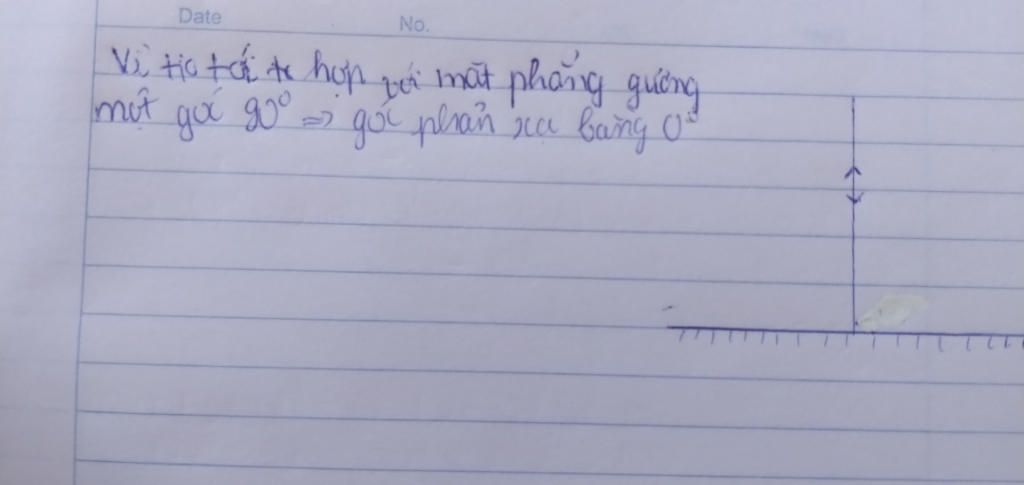 Date No.
Vì tia tới hợp với mặt phẳng gương
một góc 90° => góc phản xạ bằng 0°